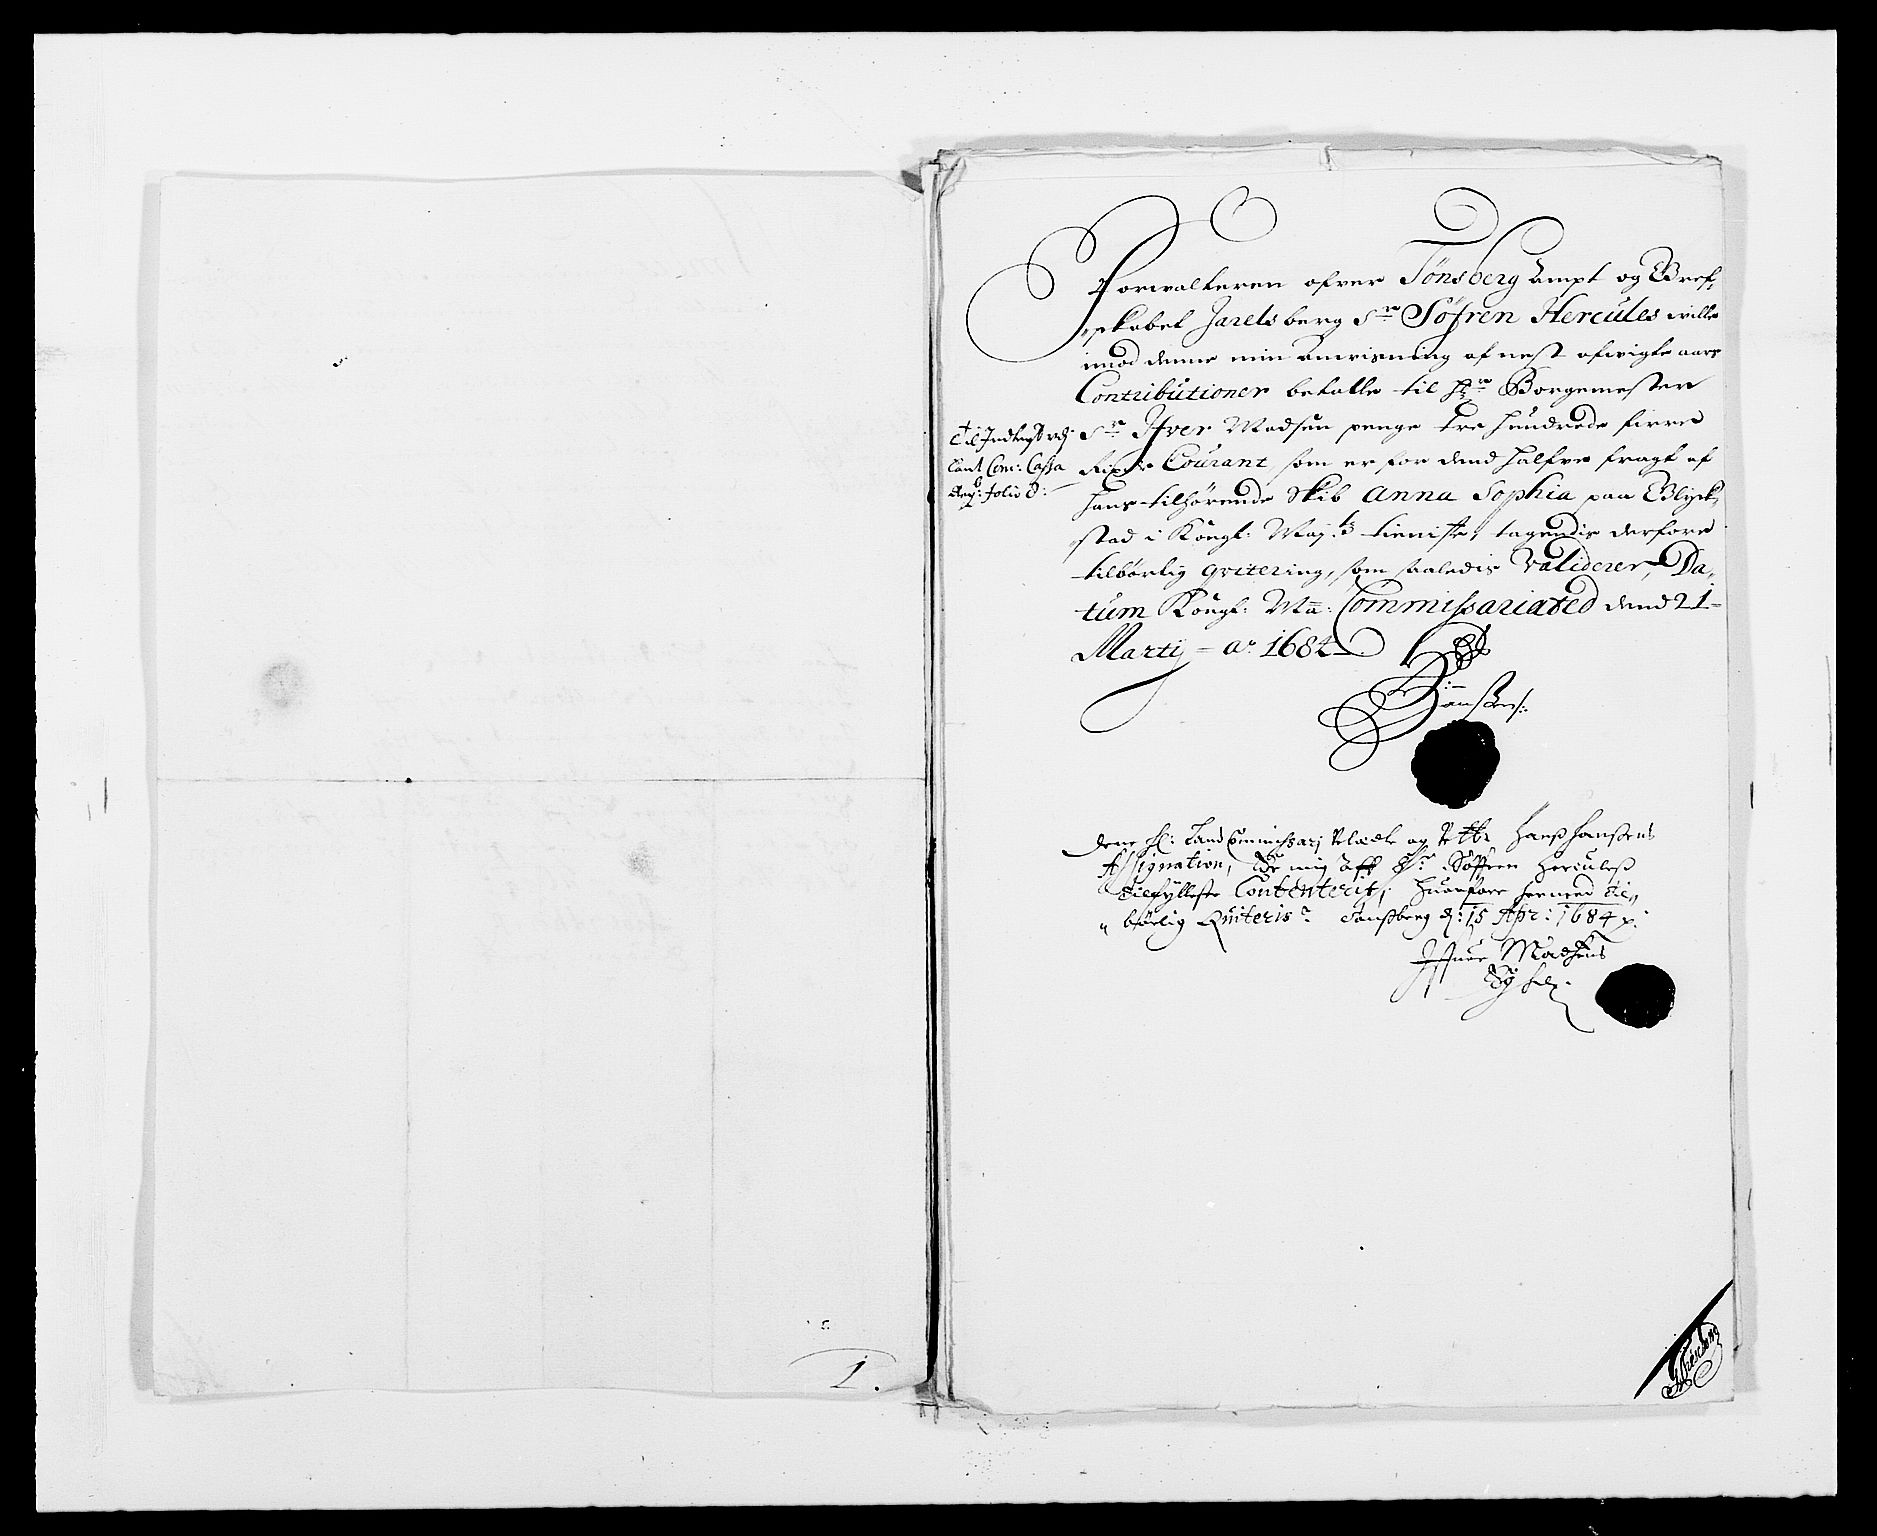 Forwalteren ofver Tönsberg Ampt og Gref,,
,,skabet Jarelsberg Sr Söfren Hercules wille
imod denne min Anvisning af nest afvigte aars
Contributioner betalle til Hr Borgemester
Sr Ifver Madsen penge tre hundrede firre
Rixdr Courant som er for dend halfve fragt af
hans tilhörende Skib Anna Sophia paa Glyck,,
,,stad i Köngl: Maj:ts tieniste, tagendis derfore
tilbörlig qvitering, som saaledis validerer, Da,,
tum Köngl: Ma: Commissariated dend 21
Martij ao 1684
Hansen
Til Indtegt udj
Land Com: Cassa
Reg: folio 8:
Denne H: Land Commissarj og Hanss Hanssens
Assignation, er mig aff Sr Söffren Herculess
tilfylleste Contenterit, huorfore hermed til,,
,,börlig Quiteris. Tonssberg d: 15 Apr: 1684
Iffuer Madsens
1.